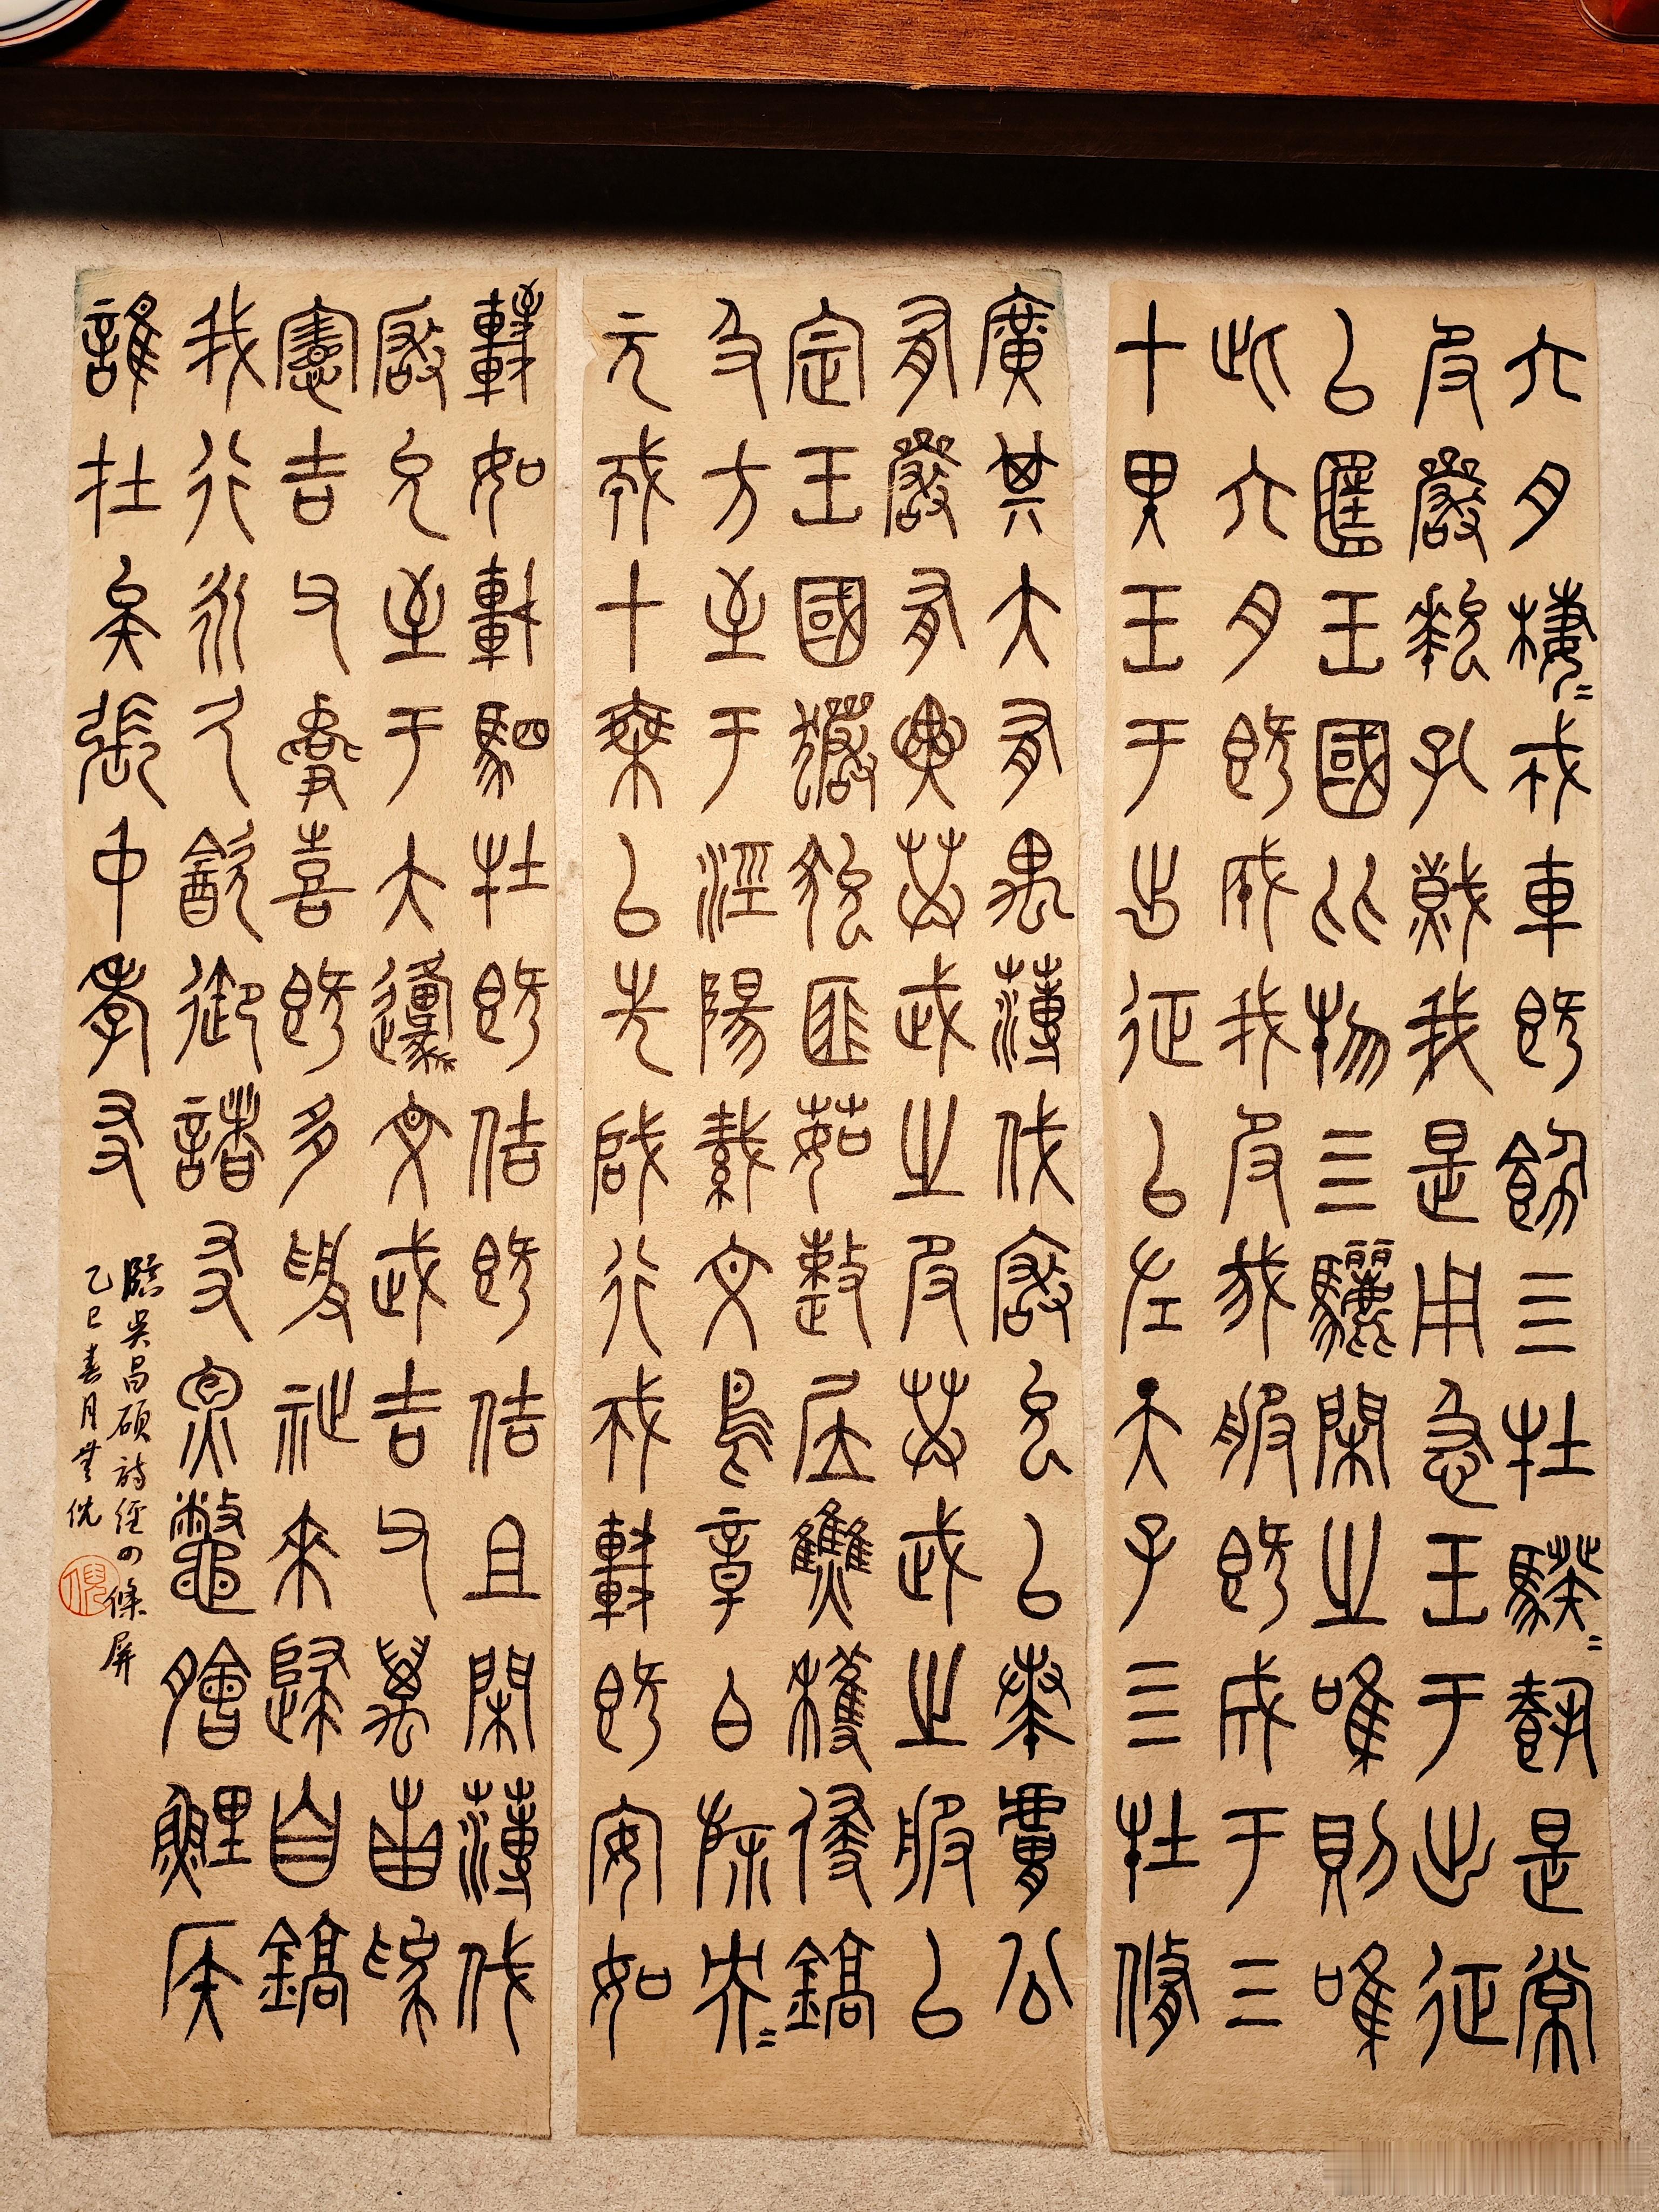 六月棲棲戎車既飭四牡騤騤載是常
服玁狁孔熾我是用急王于出征
以匡王國比物四驪閑之唯則唯
此六月既成我服我服既成于三
十里王于出征以左天子四牡修
廣其大有顒薄伐玁狁以奏膚公
有嚴有翼共武之服共武之服以
定王國玁狁匪茹整居焦穫侵鎬
及方至于涇陽織文鳥章白旆央央
元戎十乘以先啟行戎車既安如
輊如軒四牡既佶既佶且閑薄伐
玁狁至于大原文武吉甫萬邦為
憲吉甫燕喜既多受祉來歸自鎬
我行永久飲御諸友炰鱉膾鯉侯
誰在矣張中孝友
臨吳昌碩詩經四條屏
乙巳春月無倪
倪